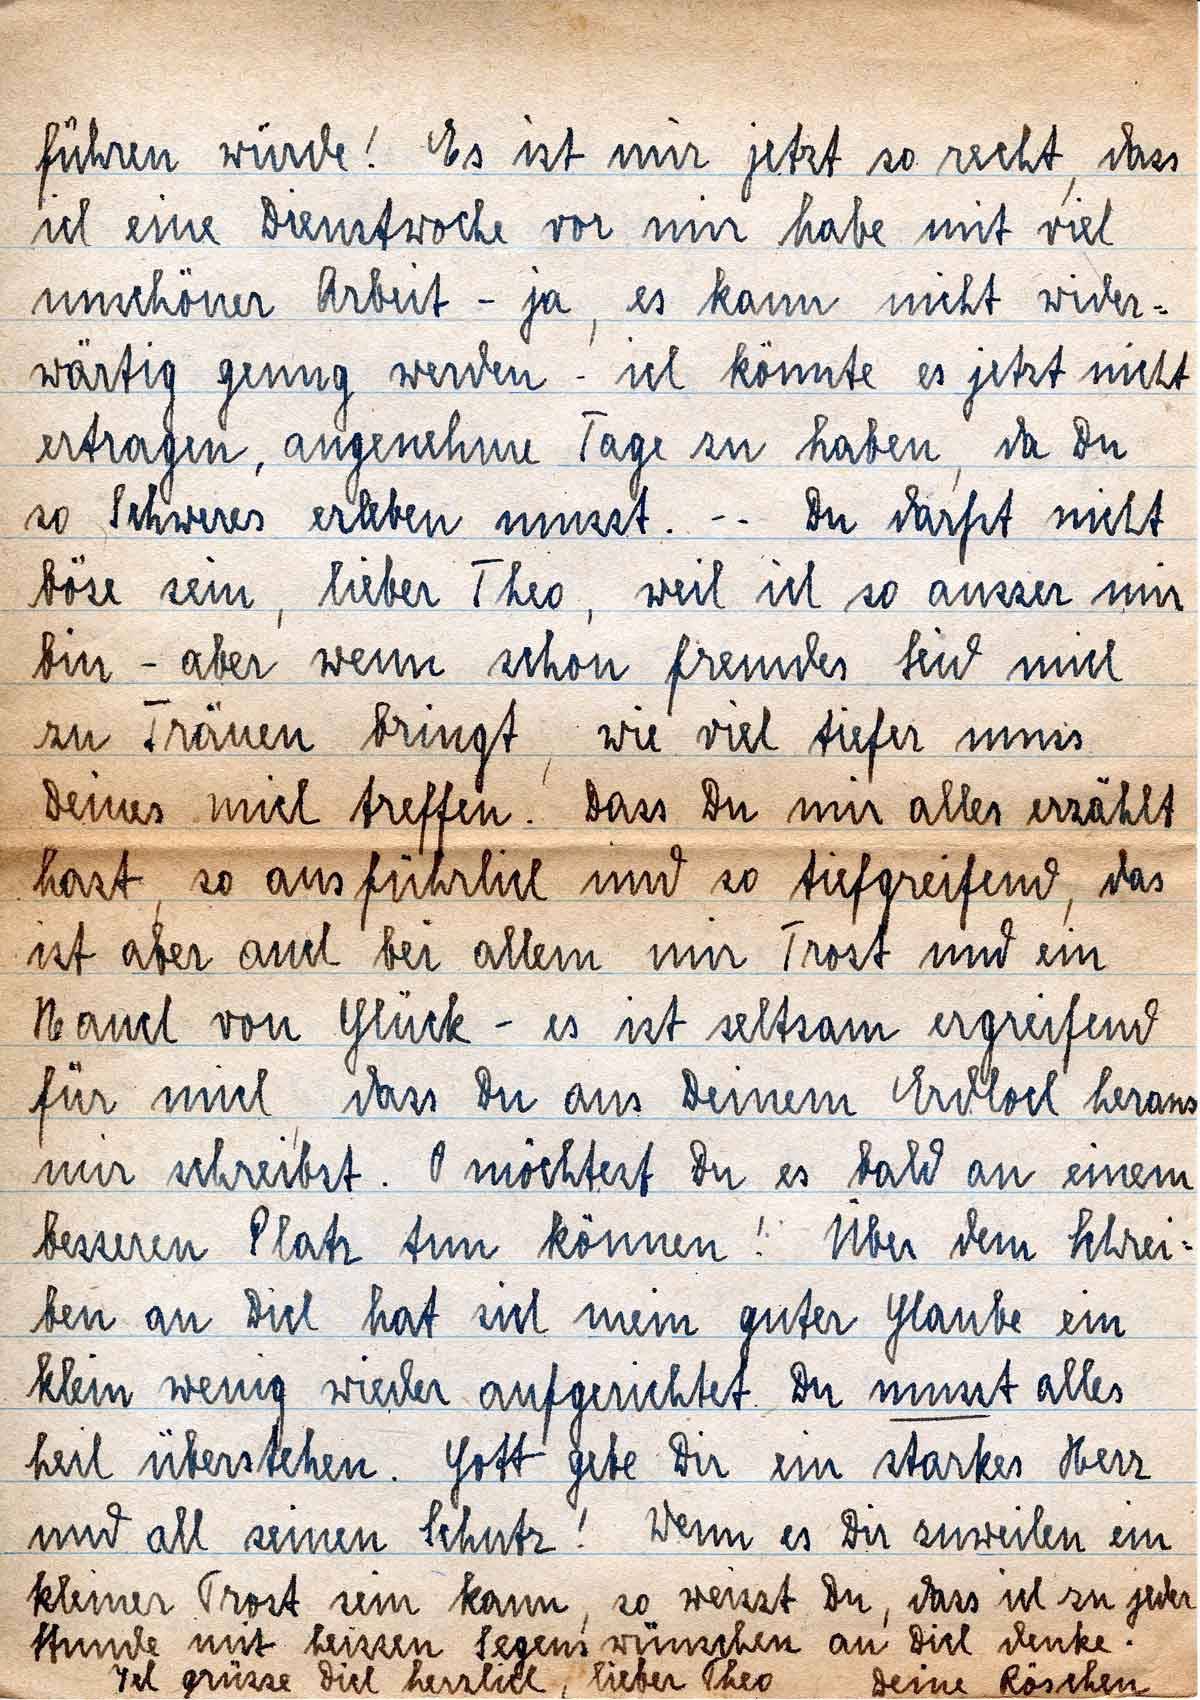 führen würde! Es ist mir jetzt so recht, dass
ich eine Dienstwoche vor mir habe mit viel
unschöner Arbeit - ja, es kann nicht wider=
wärtig genug werden - ich könnte es jetzt nicht
ertragen, angenehme Tage zu haben, da Du
so Schweres erleben musst. -- Du darfst nicht
böse sein, lieber Theo, weil ich so ausser mir
bin - aber wenn schon fremdes Leid mich
zu Tränen bringt, wie viel tiefer muss
Deines mich treffen. Dass Du mir alles erzählt
hast, so ausführlich und so tiefgreifend, das
ist aber auch bei allem mir Trost und ein
Hauch von Glück - es ist seltsam ergreifend
für mich, dass Du aus Deinem Erdloch heraus
mir schreibst. O möchtest Du es bald an einem
besseren Platz tun können! Über dem Schrei=
ben an Dich hat sich mein guter Glaube ein
klein wenig wieder aufgerichtet. Du musst alles
heil überstehen. Gott gebe Dir ein starkes Herz
und all seinen Schutz! Wenn es Dir zuweilen ein
kleiner Trost sein kann, so weisst Du, dass ich zu jeder
Stunde mit heissen Segenswünschen an Dich denke.
Ich grüsse Dich herzlich, lieber Theo Deine Röschen